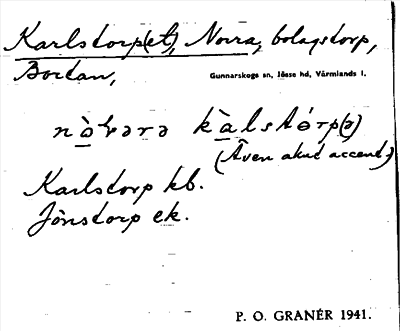 Karlstorp(et), Norra, bolagstorp,
Bordan,
Gunnarskogs sn, Jösse hd, Värmlands l.
kàlstórp(ə)
(Även akut accent.)
Karlstorp kb.
Jönstorp ek.
P. O. GRANÉR 1941.